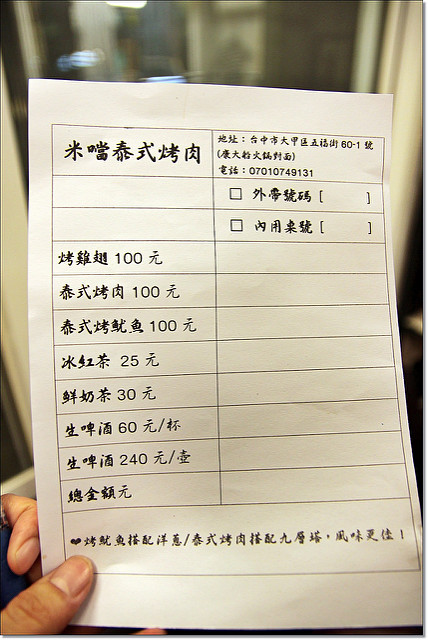 米噹泰式烤肉
地址：台中市大甲區五福街60-1號
(廣大船火鍋對面)
電話：07010749131
□ 外帶號碼 [ ]
□ 內用桌號 [ ]
烤雞翅 100 元
泰式烤肉 100 元
泰式烤魷魚 100 元
冰紅茶 25 元
鮮奶茶 30 元
生啤酒 60 元/杯
生啤酒 240 元/壺
總金額元
❤烤魷魚搭配洋蔥/泰式烤肉搭配九層塔，風味更佳！